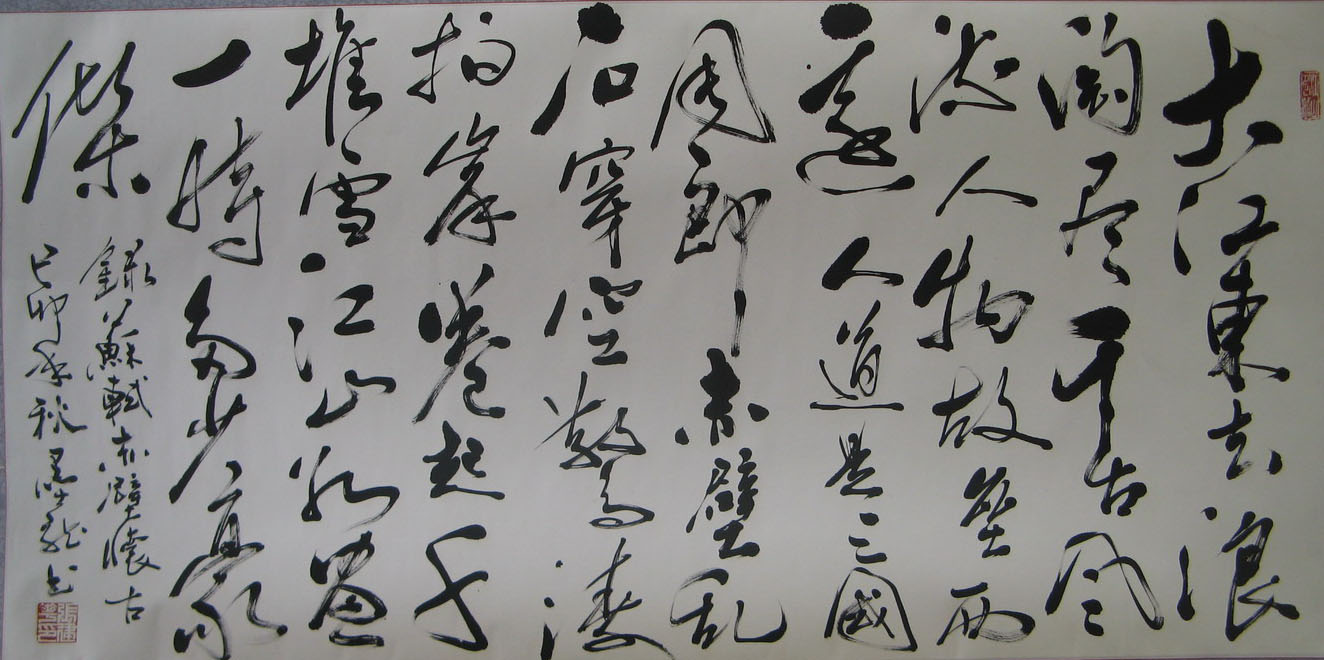 大江東去浪
淘尽千古风
流人物故垒西
邊人道是三國
周郎赤壁乱
石穿空驚涛
拍岸卷起千
堆雪江山如畫
一時多少豪
傑
錄蘇軾赤壁懷古
己卯季秋墨龙书